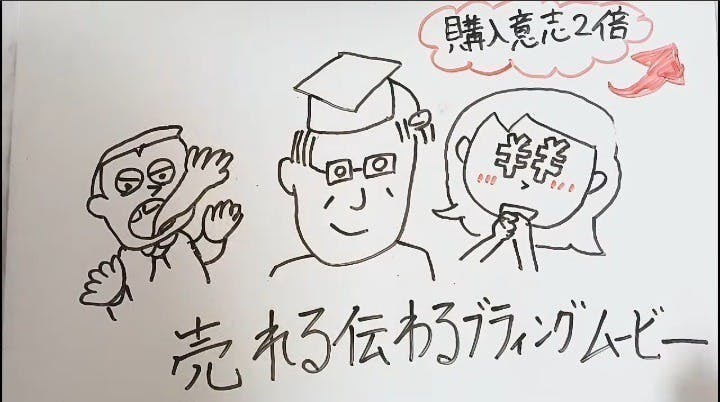 購入意志2倍
売れる伝わるブティングムービー